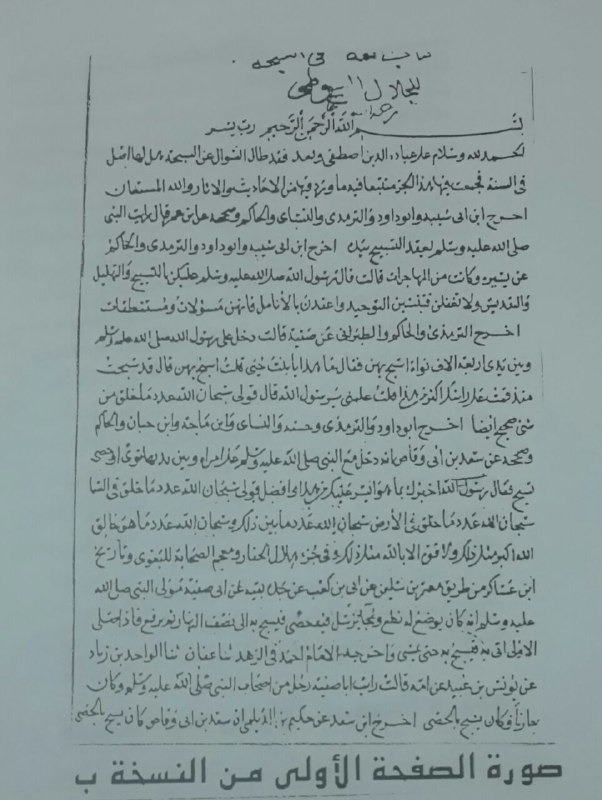 كتاب المنحة في السبحة
للجلال السيوطي
رحمه الله
بسم الله الرحمن الرحيم رب يسر
الحمد لله وسلام على عباده الذين اصطفى وبعد فقد طال السؤال عن السبحة هل لها اصل
في السنة فجمعت فيها هذا الجزء متتبعا فيه ما ورد فيها من الاحاديث والاثار والله المستعان
اخرج ابن ابى شيبه وابو داود والترمذى والنساى والحاكم وصححه عن ابن عمر قال رايت النبى
صلى الله عليه وسلم يعقد التسبيح بيده اخرج ابن ابى شيبه وابو داود والترمذى والحاكم
عن يسيره وكانت من المهاجرات قالت قال رسول الله صلى الله عليه وسلم عليكن بالتسبيح والتهليل
والتقديس ولا تغفلن فتنسين التوحيد واعقدن بالأنامل فانهن مسؤلات ومستنطقات
اخرج الترمذى والحاكم والطبرانى عن صفية قالت دخل على رسول الله صلى الله عليه وسلم
وبين يدى اربعة الاف نواة اسبح بهن فقال ما هذا يا بنت حيى قلت اسبح بهن قال قد سبحت
منذ قمت على راسك اكثر من هذا قلت علمنى يا رسول الله قال قولى سبحان الله عدد ما خلق من
شئ صحيح ايضا اخرج ابو داود والترمذى وحسنه والنساى وابن ماجة وابن حبان والحاكم
وصححه عن سعد بن ابى وقاص انه دخل مع النبى صلى الله عليه وسلم على امراة وبين يديها نوى او حصى
تسبح فقال رسول الله اخبرك بما هو ايسر عليك من هذا وافضل قولى سبحان الله عدد ما خلق فى السما
سبحان الله عدد ما خلق فى الأرض سبحان الله عدد ما بين ذلك وسبحان الله عدد ما هو خالق
الله اكبر مثل ذلك ولا قوة الا بالله مثل ذلك وفى جزء هلال الحفار ومعجم الصحابة للبغوى وتاريخ
ابن عساكر من طريق معتمر بن سليمن عن ابى بن كعب عن جده بقيه عن ابى صفية مولى النبى صلى الله
عليه وسلم انه كان يوضع له نطع ويجا بزنبيل فيه حصى فيسبح به الى نصف النهار ثم يرفع فاذا صلى
الاولى اتى به فيسبح به حتى يمسى واخرجه الامام احمد فى الزهد ثنا عفان ثنا الواحد بن زياد
عن يونس بن عبيد عن امه قالت رايت ابا صفية رجل من اصحاب النبى صلى الله عليه وسلم وكان
جارنا فكان يسبح بالحصى اخرج ابن سعد عن حكيم بن الديلمى ان سعد بن ابى وقاص كان يسبح بالحصى
صورة الصفحة الأولى من النسخة ب